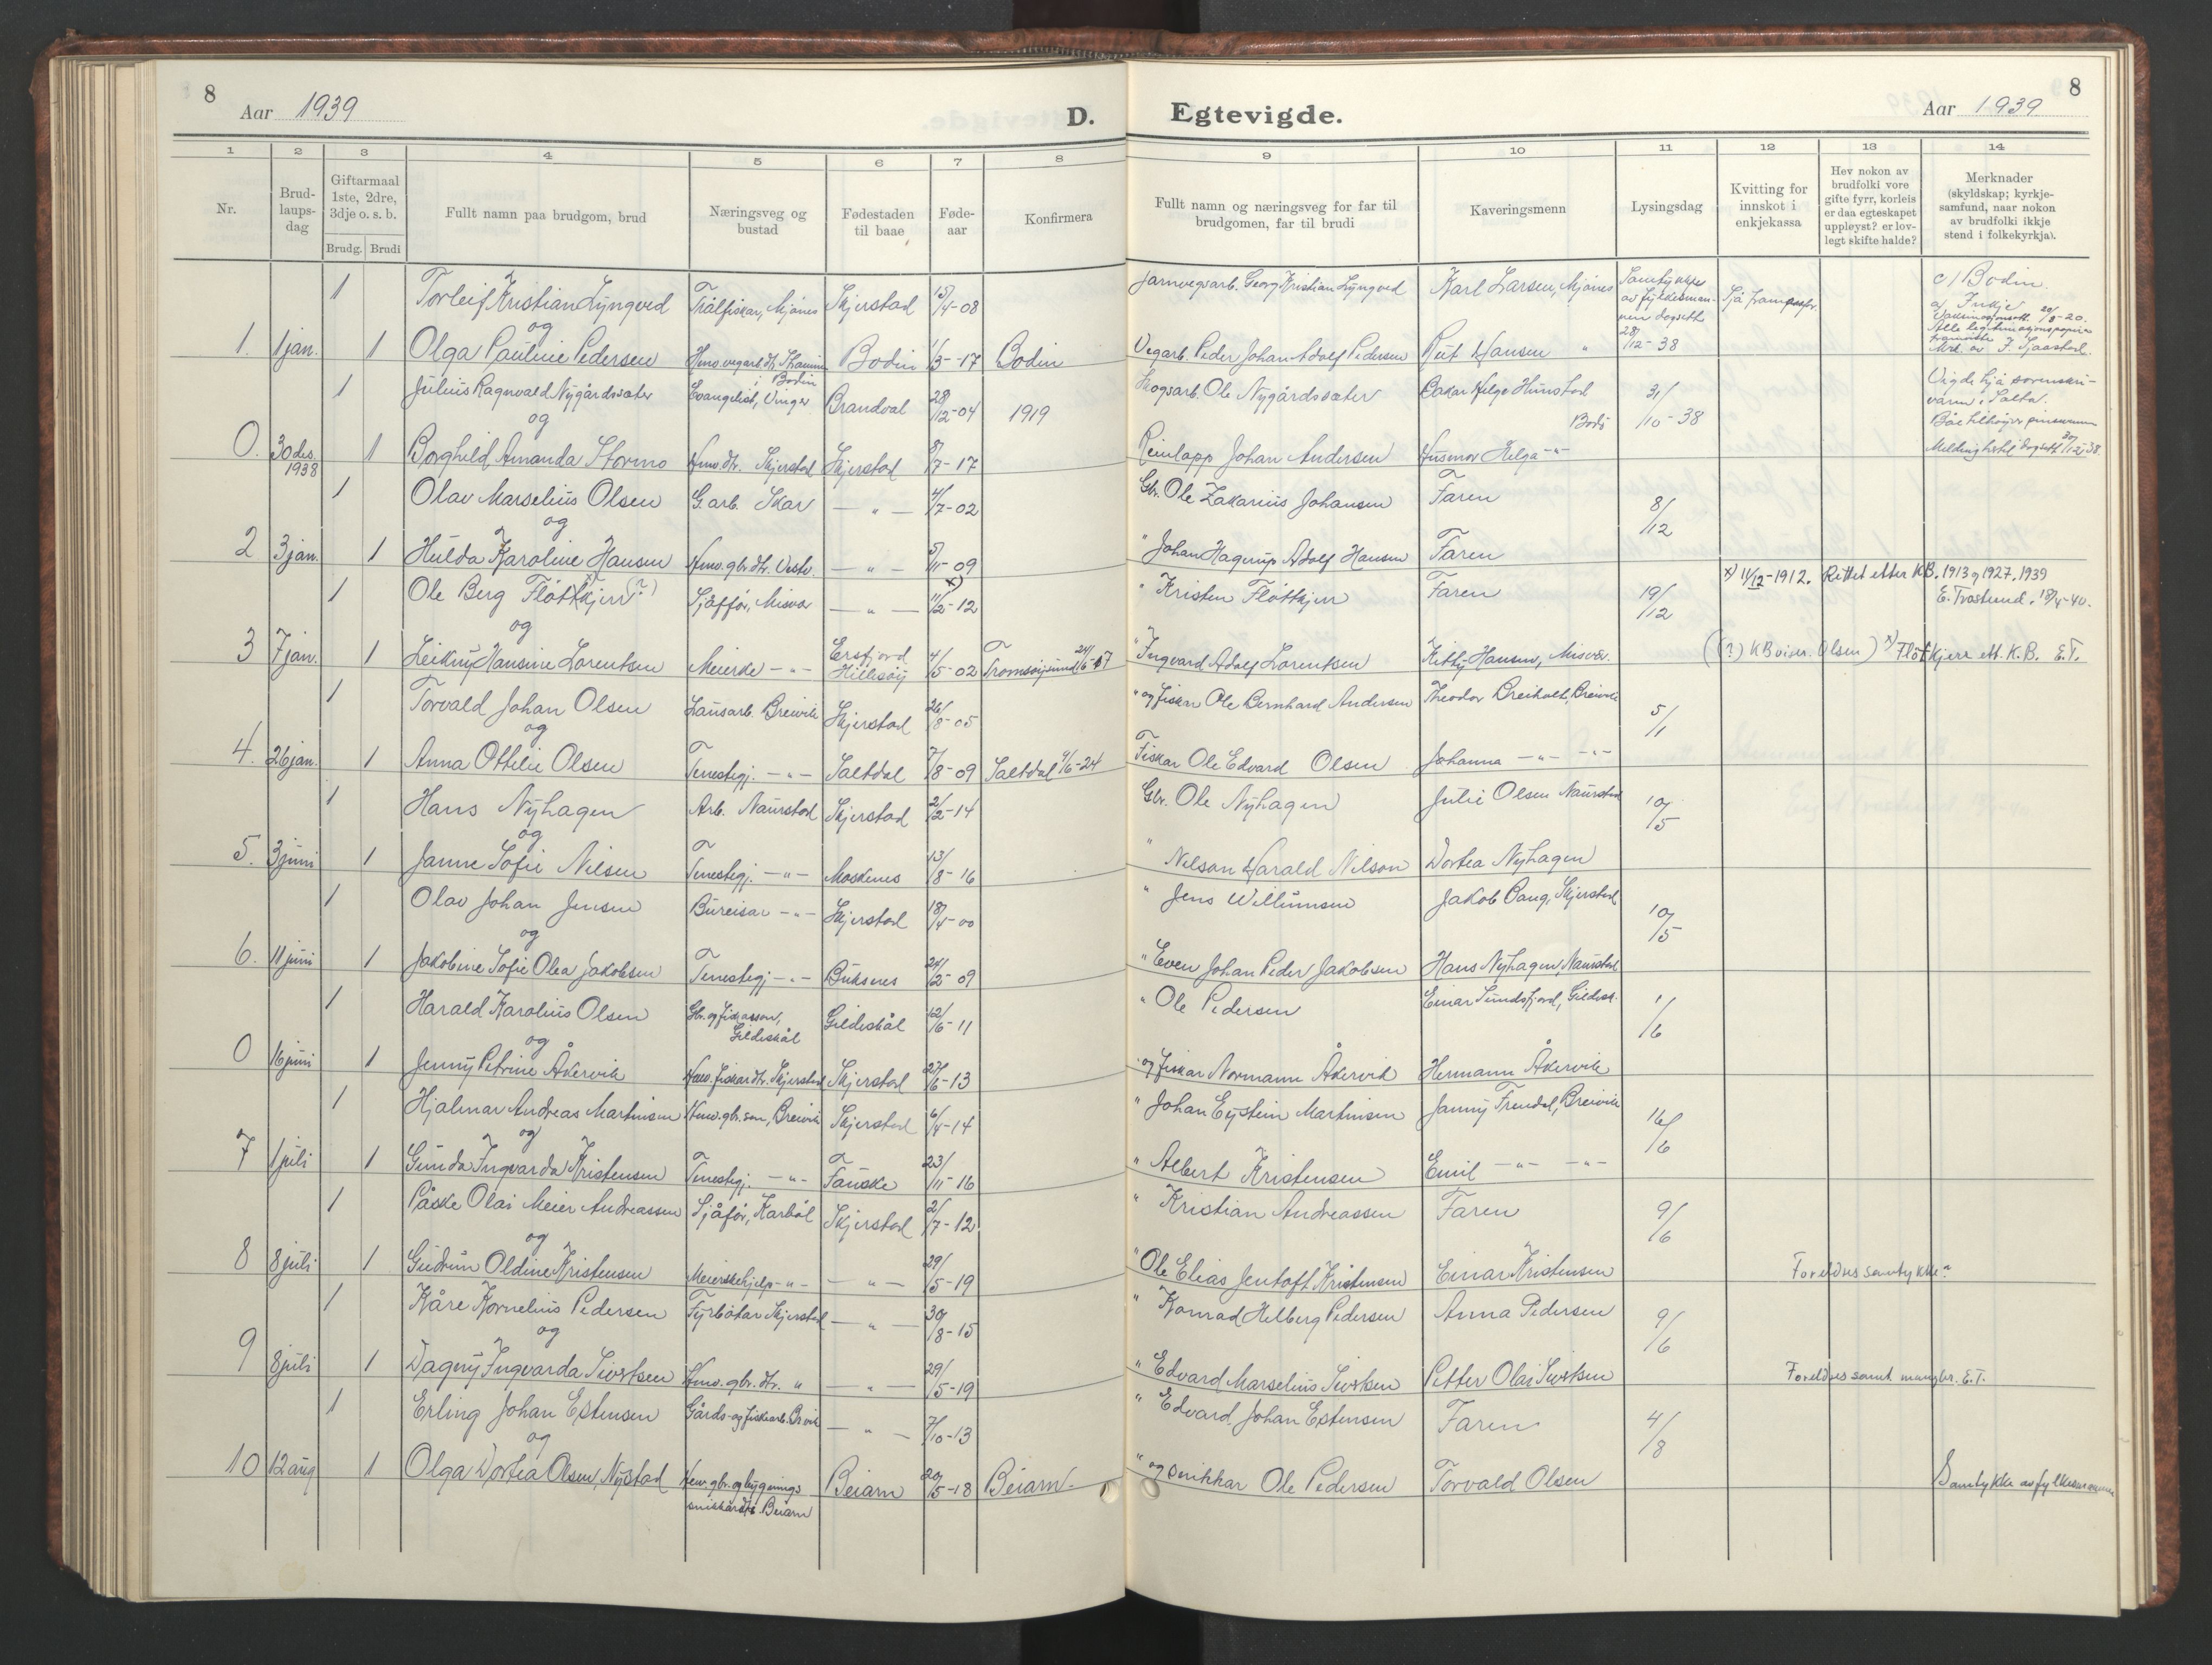 8
Aar 1939
D.
Egtevigde.
Aar 1939
8
1 2 3 4 5 6 7 8 9 10 11 12 13 14
Nr.
Brud-
laups-
dag
Giftarmaal
1ste, 2dre,
3dje o. s. b.
Brudg. Brudi
Fullt namn paa brudgom, brud
Næringsveg og
bustad
Fødestaden
til baae
Føde-
aar
Konfirmera
Fullt namn og næringsveg for far til
brudgomen, far til brudi
Kaveringsmenn
Lysingsdag
Kvitting for
innskot i
enkjekassa
Hev nokon av
brudfolki vore
gifte fyrr, korleis
er daa egteskapet
uppløyst? er lov-
legt skifte halde?
Merknader
(skyldskap; kyrkje-
samfund, naar nokon
av brudfolki ikkje
stend i folkekyrkja).
1 Torleif Kristian Lyngved Trålfiskar, Mjönes Skjerstad 15/4-08 Jarnvegsarb. Georg Kristian Lyngved Karl Larsen, Mjönes Samtykkje
av fylkesman-
nen dagsett
28/12-38
c/ Bodin.
og
1. 1 jan. 1 Olga Pauline Pedersen Bodin 1/3-17 Bodin Vegarb. Peder Johan Adolf Pedersen Rut Hansen "
i Bodin
1 Julius Ragnvald Nygårdssæter Evangelist, Vinger Brandval 28/12-04 1919 Skogsarb. Ole Nygårdssæter Bakar Helge Hunstad
Bodö 31/10-38
Vigde hjå sorenskri-
varen i Salta.
og
0. 30 des.
1938 1 Borghild Amanda Stormo Hmv. dtr. Skjerstad Skjerstad 8/7-17 Reinlapp Johan Andersen Husmor Helga -"-
1 Olav Marselius Olsen G.arb. Skar — " — 4/7-02 Gbr. Ole Zakarius Johansen Faren 8/12
og
2 3 jan. 1 Hulda Karoline Hansen Hmv. gbr. dtr. Vestv. — " — 5/11-09 " Johan Hagerup Adolf Hansen Faren
1 Ole Berg Flöttkjerr (?) Sjåför, Misvær — " — x) 11/2-12 " Kristen Flöttkjerr Faren 19/12 x) 11/12-1912. Rettet etter KB. 1913 og 1927. 1939
E. Trostrund. 18/4-40.
og
3 7 jan. 1 Leikny Hansine Lorentsen Meierske -"- Ersfjord
Hillesöy 4/5-02 Tromsöysund 24/6-17 " Ingvard Adolf Lorentsen Kitty Hansen, Misvær. ((?) KB viser: Olsen) x) Flöttkjerr ett. K.B. E.T.
1 Torvald Johan Olsen Lausarb. Breivik Skjerstad 26/8-05 " og fiskar Ole Bernhard Andersen Theodor Breivik, Breivik 5/1
og
4. 26 jan. 1 Anna Ottilie Olsen Tenestegj. -"- Saltdal 7/8-09 Saltdal 9/6-24 Fiskar Ole Edvard Olsen Johanna -"- -"-
1 Hans Nyhagen Arb. Naurstad Skjerstad 2/2-14 Gbr. Ole Nyhagen Julie Olsen Naurstad 10/5
og
5. 3 juni 1 Janne Sofie Nilsen Tenestegj. -"- Moskenes 13/8-16 " Nelson Harald Nilson Dortea Nyhagen
1 Olav Johan Jensen Bureisar -"- Skjerstad 18/4-00 " Jens Willumsen Jakob Vang, Skjerstad 10/5
og
6. 11 juni 1 Jakobine Sofie Olea Jakobsen Tenestegj -"- Buksnes 24/2-09 " Even Johan Peder Jakobsen Hans Nyhagen Naurstad
1 Harald Karolius Olsen Gbr. og fiskarson,
Gildeskål Gildeskål 12/6-11 " Ole Pedersen Einar Sundsfjord, Gildesk. 1/6
og
0 16 juni 1 Jenny Petrine Åkervik Hmv. fiskardtr. Skjerstad Skjerstad 27/6-13 " og fiskar Normann Åkervik Hermann Åkervik
1 Hjalmar Andreas Martinsen Hmv. gbr. son, Breivik Skjerstad 6/4-14 " Johan Eystein Martinsen Janny Frendal, Breivik 16/6
og
7 1 juli 1 Gunda Ingvarda Kristensen Tenestegj. -"- Fauske 23/11-16 " Albert Kristensen Emil -"- -"-
1 Påske Olai Meier Andreassen Sjåför, Karböl Skjerstad 2/7-12 " Kristian Andreassen Faren 9/6
og
8 8 juli 1 Gudrun Oldine Kristensen Meierskehjelp -"- — " — 29/5-19 " Ole Elias Jentoft Kristensen Einar Kristensen Foreldres samtykke?
1 Kåre Kornelius Pedersen Fyrbötar Skjerstad — " — 30/8-15 " Konrad Helberg Pedersen Anna Pedersen 9/6
og
9 8 juli 1 Dagny Ingvarda Sivertsen Hmv. gbr. dtr. " — " — 29/5-19 " Edvard Marselius Sivertsen Petter Olai Sivertsen Foreldres samt. manglar. E.T.
1 Erling Johan Estensen Gårds- og fiskearb. Breivik — " — 7/10-13 " Edvard Johan Estensen Faren 4/8
og
10 12 aug 1 Olga Dortea Olsen, Nystad Hmv. gbr. og bygnings-
snikkardtr. Beiarn Beiarn 20/5-18 Beiarn " og snikkar Ole Pedersen Torvald Olsen Samtykke av fylkesmannen